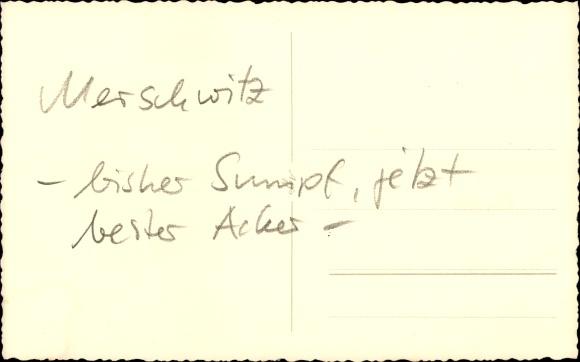 Merschwitz
- bisher Sumpf, jetzt
bester Acker -